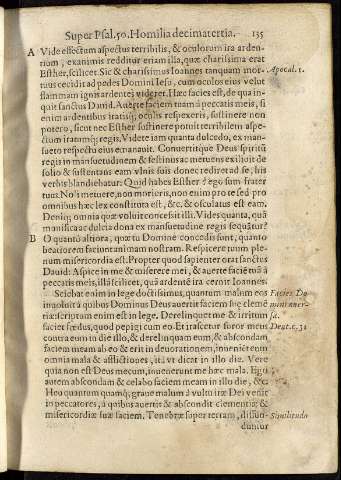 Super Psal. 50. Homilia decimatertia. 135
A Vide effectum aspectus terribilis, & oculorum ira arden-
tium, exanimis redditur etiam illa, quæ charissima erat
Esther, scilicet. Sic & charissimus Ioannes tanquam mor- Apocal. 1.
tuus cecidit ad pedes Domini Iesu, cum oculos eius velut
flammam ignis ardentes videret. Hæc facies est, de qua in-
quit sanctus Dauid. Auerte faciem tuam à peccatis meis, si
enim ardentibus iratisq; oculis respexeris, sustinere non
potero, sicut nec Esther sustinere potuit terribilem aspe-
ctum iratumq; regis. Videte iam quanta dulcedo, ex man-
sueto respectu eius emanauit. Conuertitque Deus spiritũ
regis in mansuetudinem & festinus ac metuens exiliuit de
solio & sustentans eam vlnis suis donec rediret ad se, his
verbis blandiebatur: Quid habes Esther? ego sum frater
tuus. Noli metuere, non morieris, non enim pro te sed pro
omnibus hæc lex constituta est, &c. & osculatus est eam.
Deniq; omnia quæ voluit concessit illi. Vides quanta, quã
manifica ac dulcia dona ex mansuetudine regis sequãtur?
B O quantò altiora, quæ tu Domine concedis sunt, quanto
beatiorem faciunt animam nostram. Respicere tuum ple-
num misericordia est. Propter quod sapienter orat sanctus
Dauid: Aspice in me & miserere mei, & auerte faciẽ tuã à
peccatis meis, illã scilicet, quã ardentẽ ira cernit Ioannes.
Sciebat enim in lege doctissimus, quantum malum eos Facies Do
inuoluit à quibus Dominus Deus auertit faciem suę clemẽ mini auer-
tiæ: scriptum enim est in lege. Derelinquet me & irritum sa.
faciet fœdus, quod pepigi cum eo. Et irascetur furor meus Deut. c. 31
contra eum in die illo, & derelinquam eum, & abscondam
faciem meam ab eo & erit in deuorationem, inuenient eum
omnia mala & afflictiones, ita vt dicat in illo die. Vere
quia non est Deus mecum, inuenerunt me hæc mala. Ego
autem abscondam & celabo faciem meam in illo die, &c.
Heu quantum quamq; graue malum à vultu iræ Dei venit
in peccatores, à quibus auertit & abscondit clementiæ, &
misericordiæ suæ faciem. Tenebræ super terram, diffun- Similitudo
duntur